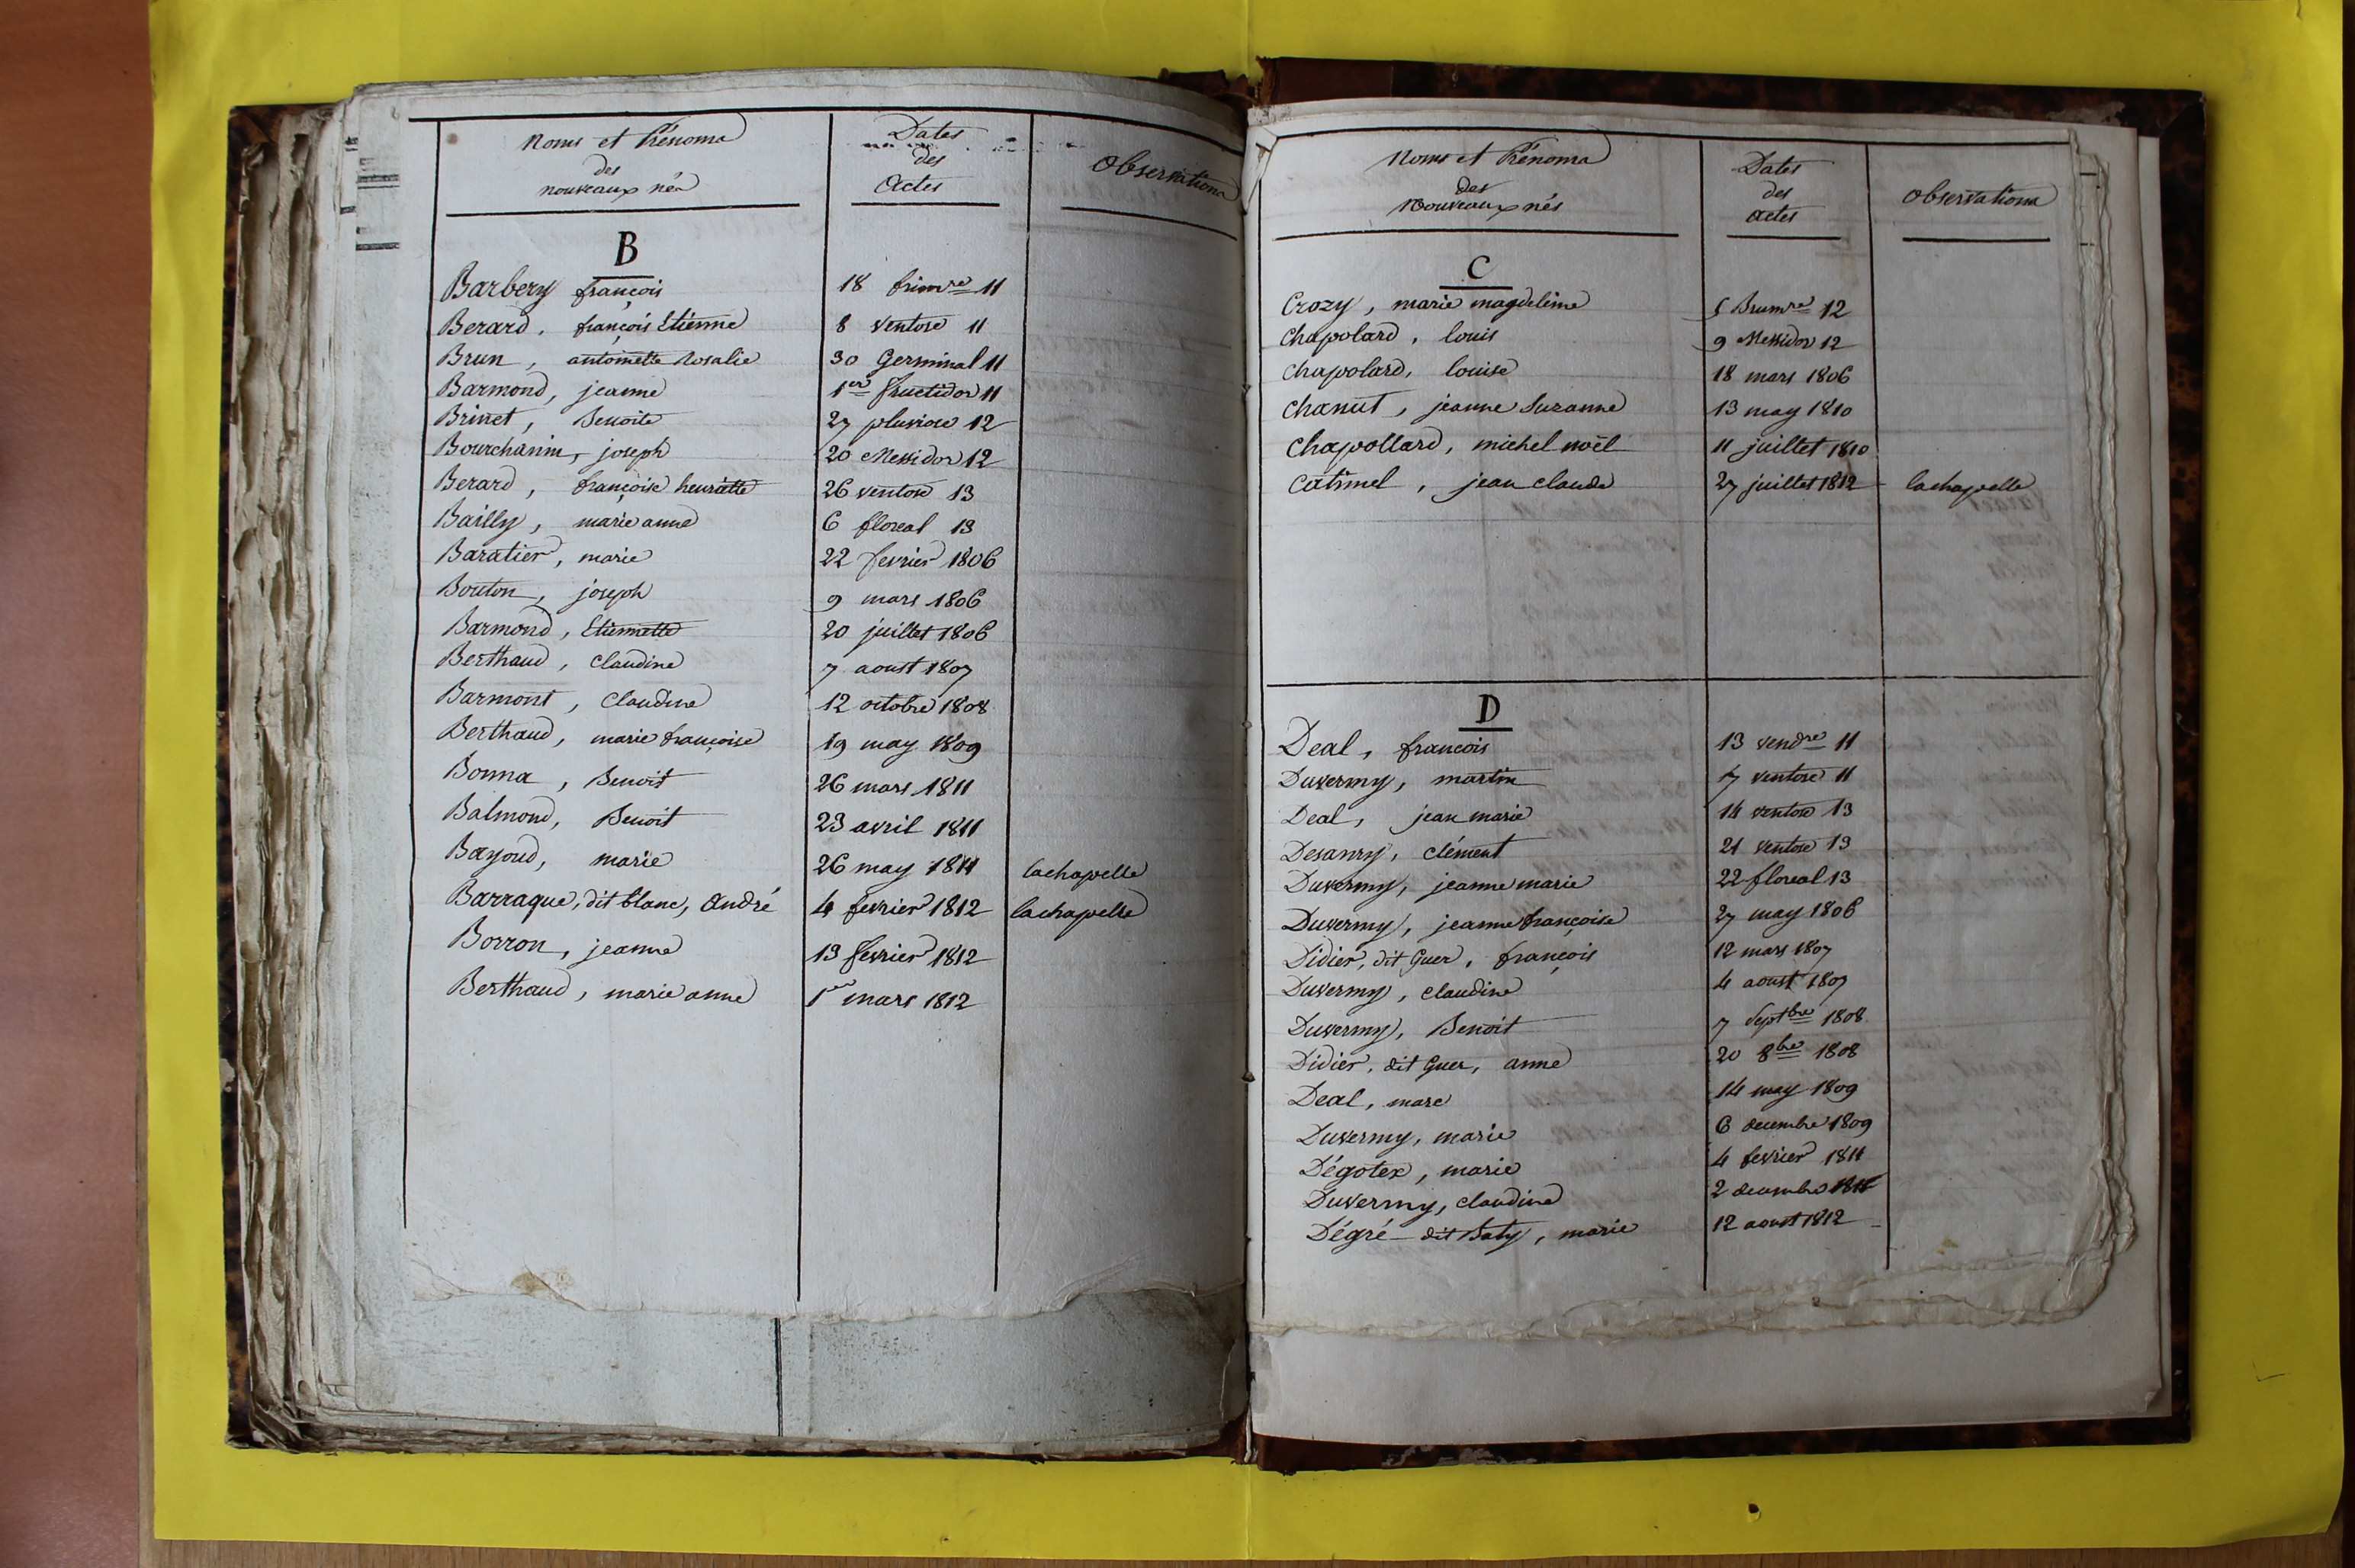 Noms et Prénoms
des
nouveaux nés
Dates
des
Actes
Observations
B
Barbery françois 18 frimre 11
Berard, françois Etienne 8 ventose 11
Brun, antoinette Rosalie 30 Germinal 11
Barmond, jeanne 1er fructidor 11
Brinet, Benoite 27 pluviose 12
Bourchanin, joseph 20 Messidor 12
Berard, françoise henriette 26 ventose 13
Bailly, marie anne 6 floreal 13
Baratier, marie 22 fevrier 1806
Bouton, joseph 9 mars 1806
Barmond, Etiennette 20 juillet 1806
Berthaud, claudine 7 aoust 1807
Barmont, Claudine 12 octobre 1808
Berthaud, marie françoise 19 may 1809
Bonna, Benoit 26 mars 1811
Balmond, Benoit 23 avril 1811
Bayoud, marie 26 may 1811 lachapelle
Barraque, dit blanc, André 4 fevrier 1812 lachapelle
Borron, jeanne 13 fevrier 1812
Berthaud, marie anne 1er mars 1812
Noms et Prénoms
des
Nouveaux nés
Dates
des
actes
Observations
C
Crozy, marie magdeleine Brumre 12
Chapolard, louis 9 Messidor 12
Chapolard, louise 18 mars 1806
Chanut, jeanne Suzanne 13 may 1810
Chapollard, michel noël 11 juillet 1810
Catimel, jean claude 27 juillet 1812 lachapelle
D
Deal, francois 13 vendre 11
Duvermy, martin 7 ventose 11
Deal, jean marie 14 ventose 13
Desanry, clément 21 ventose 13
Duvermy, jeanne marie 22 floreal 13
Duvermy, jeanne françoise 27 may 1806
Didier, dit Guer, françois 12 mars 1807
Duvermy, claudine 4 aoust 1807
Duvermy, Benoit 7 Septbre 1808
Didier, dit Guer, anne 20 8bre 1808
Deal, marc 14 may 1809
Duvermy, marie 6 decembre 1809
Dégotex, marie 4 fevrier 1811
Duvermy, claudine 2 decembre
Dégré dit Baty, marie 12 aoust 1812